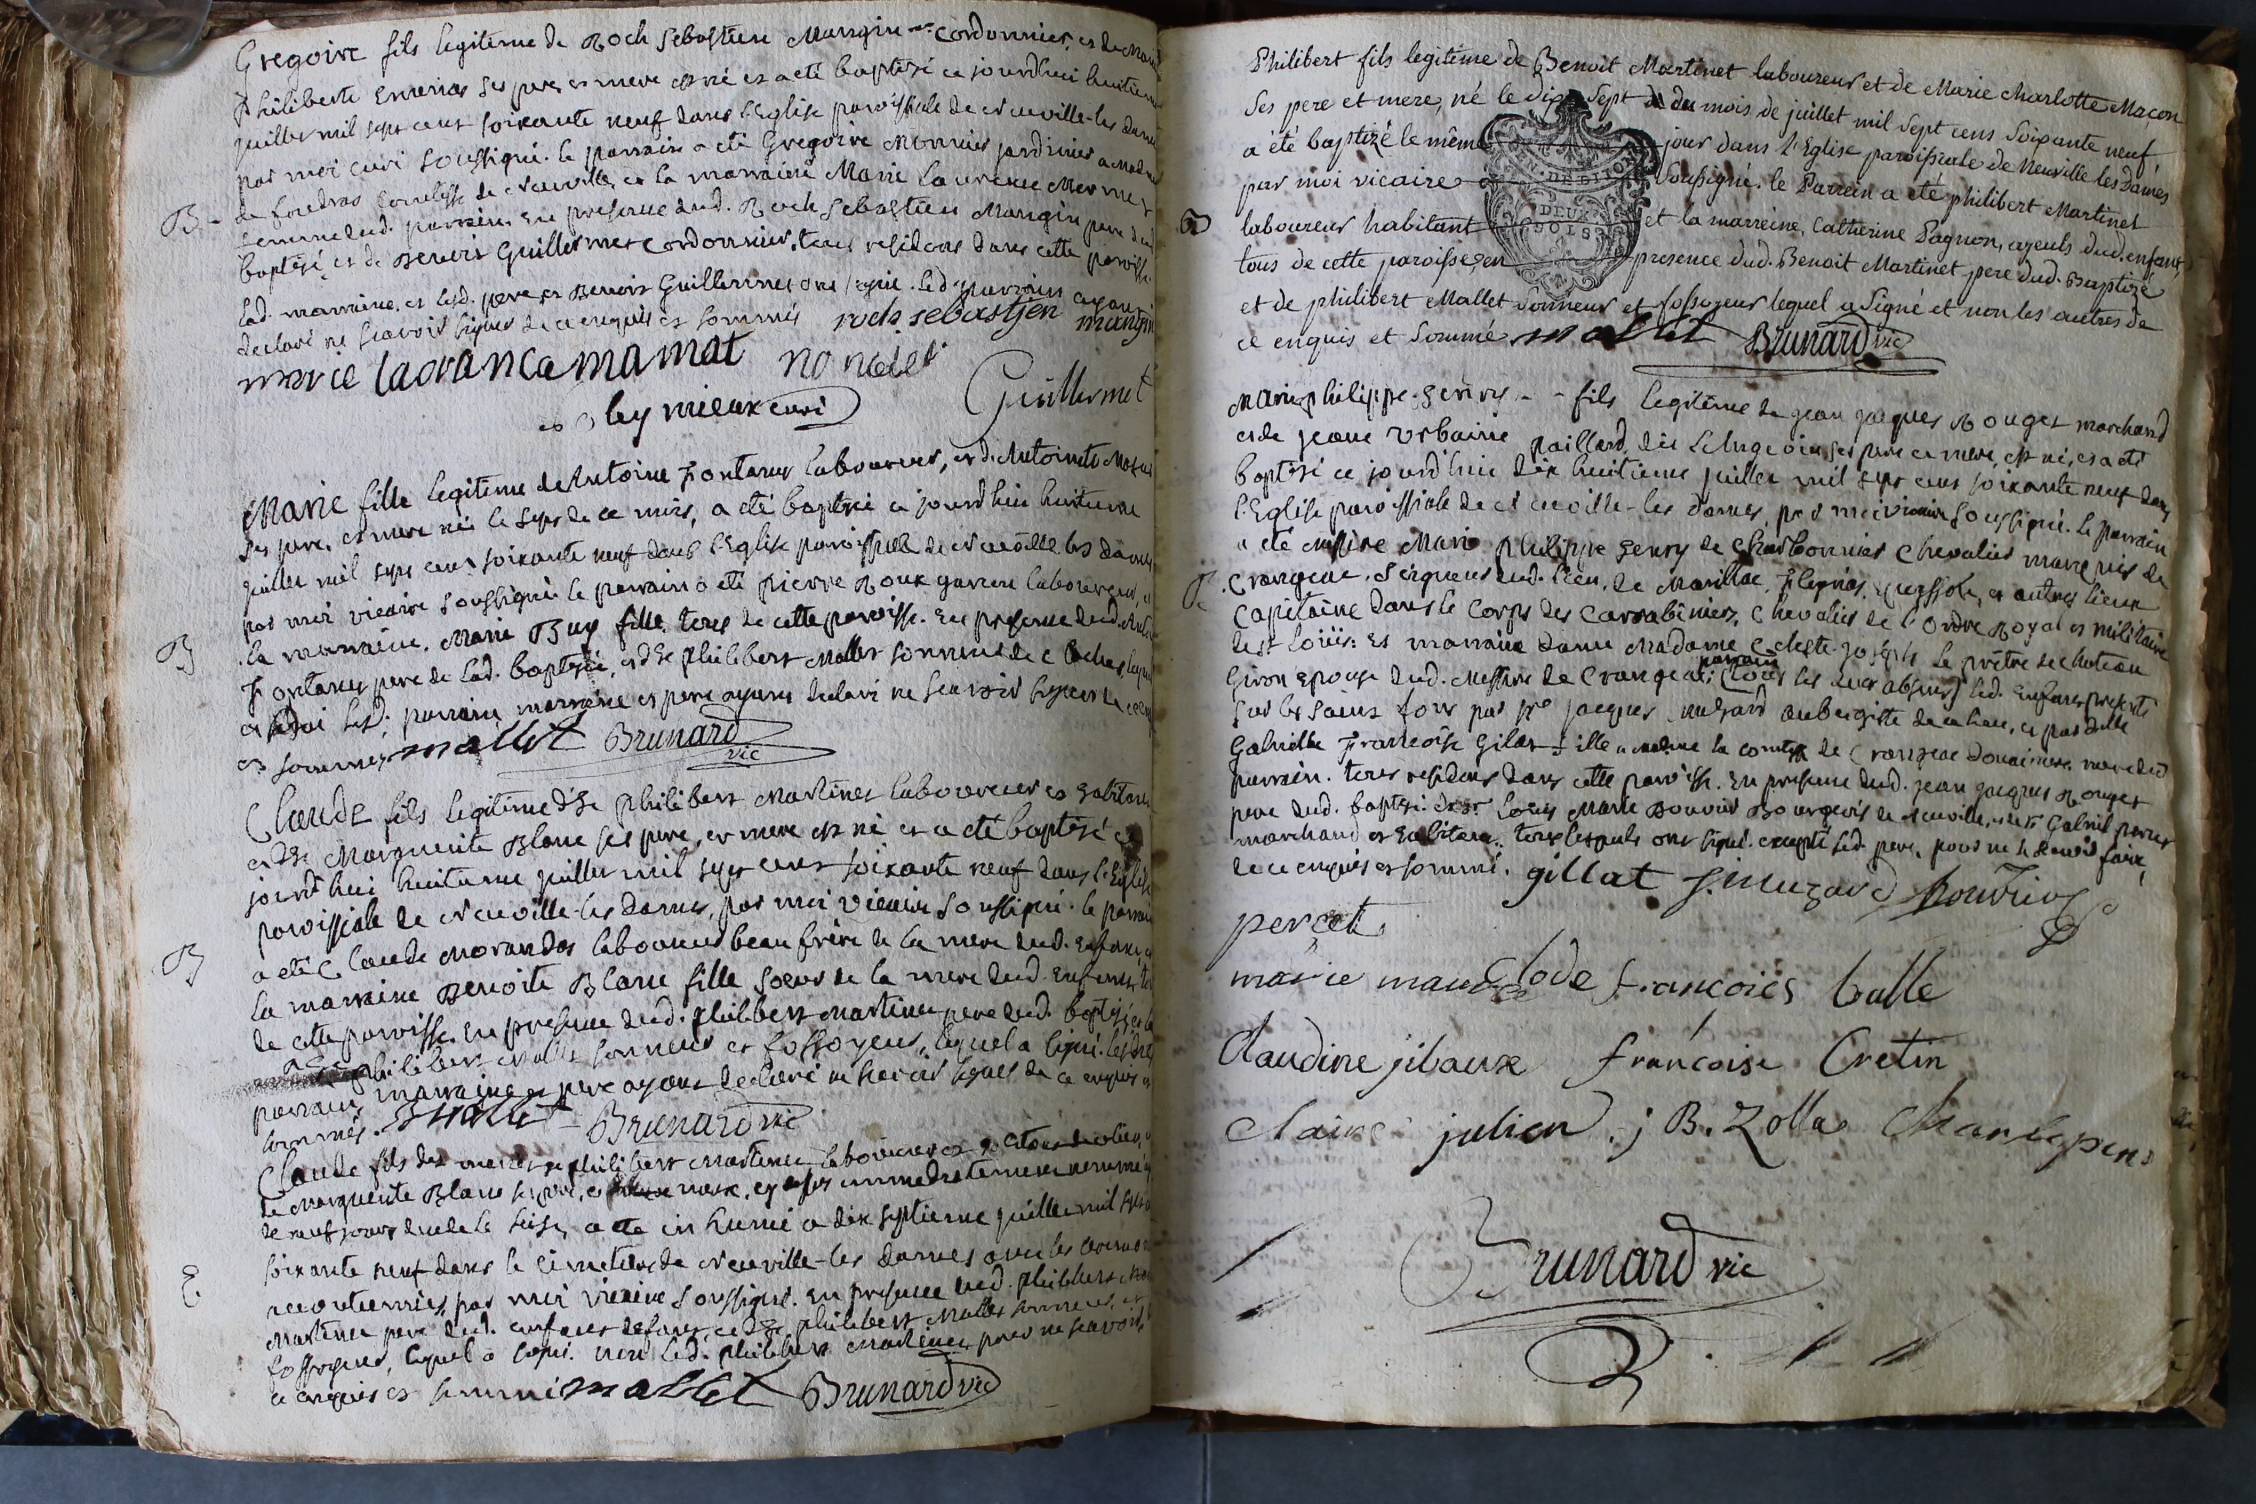 Gregoire fils legitime de Roch Sebastien Mangin cordonnier, et de
philiberte ses pere et mere est né et a eté baptisé ce jourd'hui huitieme
juillet mil sept cent soixante neuf dans l'Eglise paroissiale de neuville-les dames
par moi curé soussigné. le parrain a eté Gregoire Monnier jardinier a
de foudras Comtesse de neuville, et la marraine Marie Laurence Mermet
femme dud. parrain. en presence dud. Roch Sebastien Mangin pere dud
baptisé et de Benoit Guillermet cordonnier, tous residens dans cette paroisse.
Lad. marraine, et led. pere et Benoit Guillermet ont signé. led. parrain ayant
declaré ne scavoir signer de ce enquis et sommés roch sebastien mangin
marie
Guillermet
curé
Marie fille legitime de Antoine Fontanes laboureur, et d'Antoinette
ses pere et mere née le sept de ce mois, a eté baptisé ce jourd'hui huitieme
juillet mil sept cent soixante neuf dans l'Eglise paroissiale de neuville les dames
par moi vicaire soussigné le parrain a eté pierre Roux garcon laboureur, et
la marraine, Marie Buy fille, tous de cette paroisse. en presence dud.
Fontanes pere de lad. baptisée, et de philibert Mallet sonneur de cloches,
led. parrain marraine et pere ayans declaré ne scavoir signer de ce enquis
et sommés mallet Brunard
vic
B
Claude fils legitime de philibert Martinet laboureur et habitant
et de Marguerite Blanc ses pere, et mere est né et a eté baptisé ce
jourd'hui huitieme juillet mil sept cent soixante neuf dans l'Eglise
paroissiale de neuville-les dames, par moi vicaire soussigné. le parrain
a eté Claude Morandas laboureur beau frere de la mere dud. enfant, et
la marraine Benoite Blanc fille soeur de la mere dud. enfant, tous
de cette paroisse. en presence dud. philibert Martinet pere dud. baptisé, et
philibert Mallet sonneur et fossoyeur, lequel a signé. lesdits
parrain, marraine et pere ayant declaré ne scavoir signer de ce enquis et
sommés. mallet Brunard vic
B
Claude fils de philibert Martinet laboureur et
de Marguerite Blanc ses pere, et mere,
de neuf jours decedé le seize, a eté inhumé ce dix septieme juillet mil sept
soixante neuf dans le cimetiere de neuville-les dames avec les ceremonies
accoutumées, par moi vicaire soussigné. en presence dud. philibert
Martinet pere dud. enfant defunt, et de philibert Mallet sonneur, et
fossoyeur, lequel a signé. non led. philibert Martinet pour ne scavoir
ce enquis et sommé mallet Brunard vic
Philibert fils legitime de Benoit Martinet laboureur et de Marie Charlotte Maçon
ses pere et mere, né le dix sept du mois de juillet mil sept cens soixante neuf
a été baptizé le même jour dans l'Eglise paroissiale de Neuville les Dames
par moi vicaire soussigné. le Parrein a eté philibert Martinet
laboureur habitant et la marreine, Catherine Pagnon, ayeuls dud. enfant,
tous de cette paroisse, en presence dud. Benoit Martinet pere dud. Baptizé
et de philibert Mallet Sonneur et fossoyeur lequel a Signé et non les autres de
ce enquis et Sommé mallet Brunard vic
GEN. DE DIJON
DEUX
SOLS
Marie philippe henry - - fils legitime de jean jaques Rouget marchand
et de jeane Urbaine paillard, ses pere et mere, est né, et a eté
baptisé ce jourd'hui dix huitieme juillet mil sept cent soixante neuf dans
l'Eglise paroissiale de neuville-les dames, par moi vicaire soussigné. le parrain
a eté Messire Marie philippe henry de Charbonnier Chevalier marquis de
Crangeac. Seigneur dud. lieu, de Marillac, et autres lieux
Capitaine dans le Corps des Carrabiniers, Chevalier de l'Ordre Royal et Militaire
de st loüis: et marraine dame Madame Celeste josephe le prêtre de chateau
Giron epouse dud. Messire de Crangeac parrain (tous les deux absens) led. enfant presenté
sur les saints fons par jacques muzard aubergiste de ce lieu, et par dlle
Gabrielle Francoise Gilat fille a madame la comtesse de Crangeac douairiere mere dud
parrain. tous residens dans cette paroisse. en presence dud. jean jacques Rouget
pere dud. baptisé. de sr Loüis Marie Bouvier Bourgeois de neuville, et de sr Gabriel percet
marchand et habitant. tous lesquels ont signé. excepté led. pere, pour ne le scavoir faire,
de ce enquis et sommé. gillat J. muzard Bouvier
percet
marie Clode françoies balle
Claudine jibaux françoise Cretin
Claire julien. j B. Zolla
Brunard vic